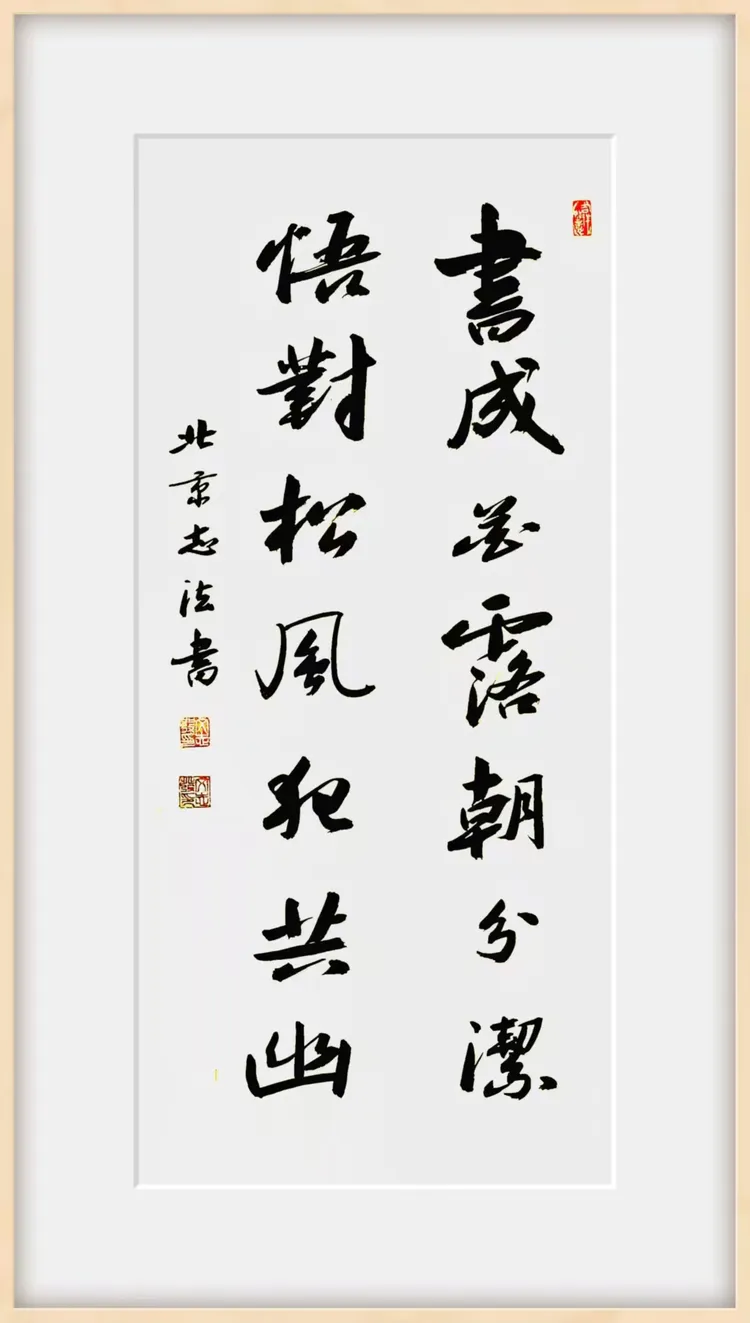 書成花露朝分潔
悟對松風犯共幽
北京志法書